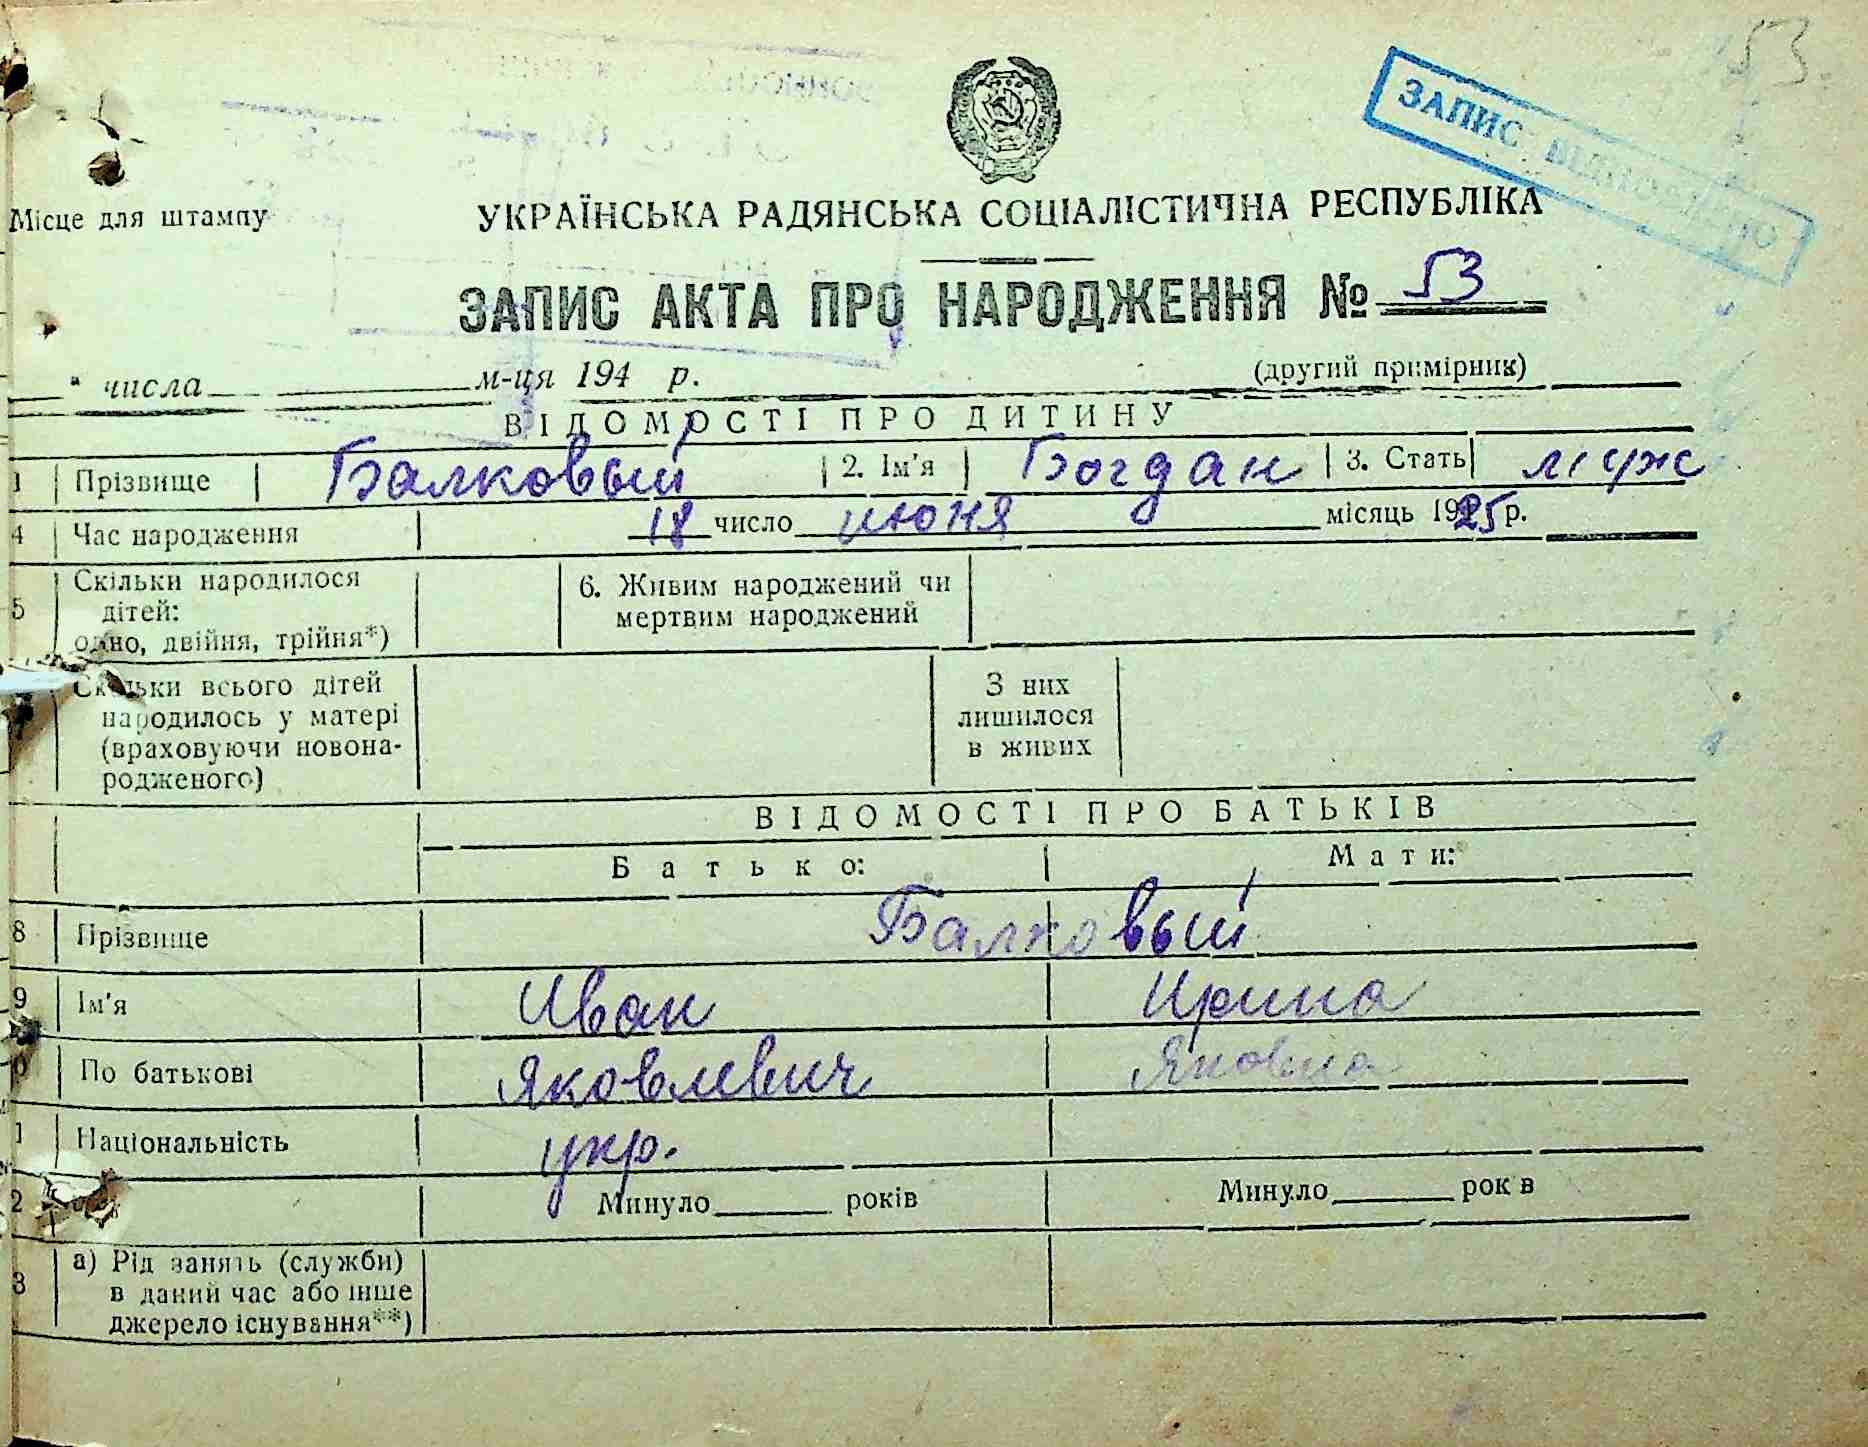 53
ЗАПИС ВІДНОВЛЕНО
Місце для штампу
УКРАЇНСЬКА РАДЯНСЬКА СОЦІАЛІСТИЧНА РЕСПУБЛІКА
ЗАПИС АКТА ПРО НАРОДЖЕННЯ № 53
" числа м-ця 194 р. (другий примірник)
ВІДОМОСТІ ПРО ДИТИНУ
1 Прізвище Балковый 2. Ім'я Богдан 3. Стать муж
4 Час народження 18 число июня місяць 1925 р.
5 Скільки народилося дітей: одно, двійня, трійня*) 6. Живим народжений чи мертвим народжений
7 Скільки всього дітей народилось у матері (враховуючи новонародженого) З них лишилося в живих
ВІДОМОСТІ ПРО БАТЬКІВ
Батько: Мати:
8 Прізвище Балковый
9 Ім'я Иван Ирина
0 По батькові Яковлевич Яковна
1 Національність укр.
2 Минуло років Минуло рок в
3 а) Рід занять (служби) в даний час або інше джерело існування**)